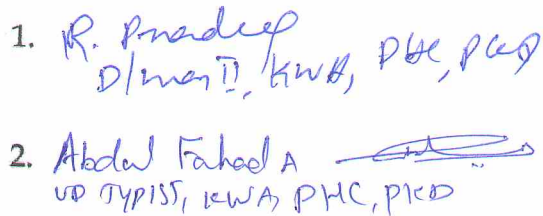 1. R. Pradeep
D/man II, KWA, PHC, PKD
2. Abdul Fahad A
UD TYPIST, KWA, PHC, PKD